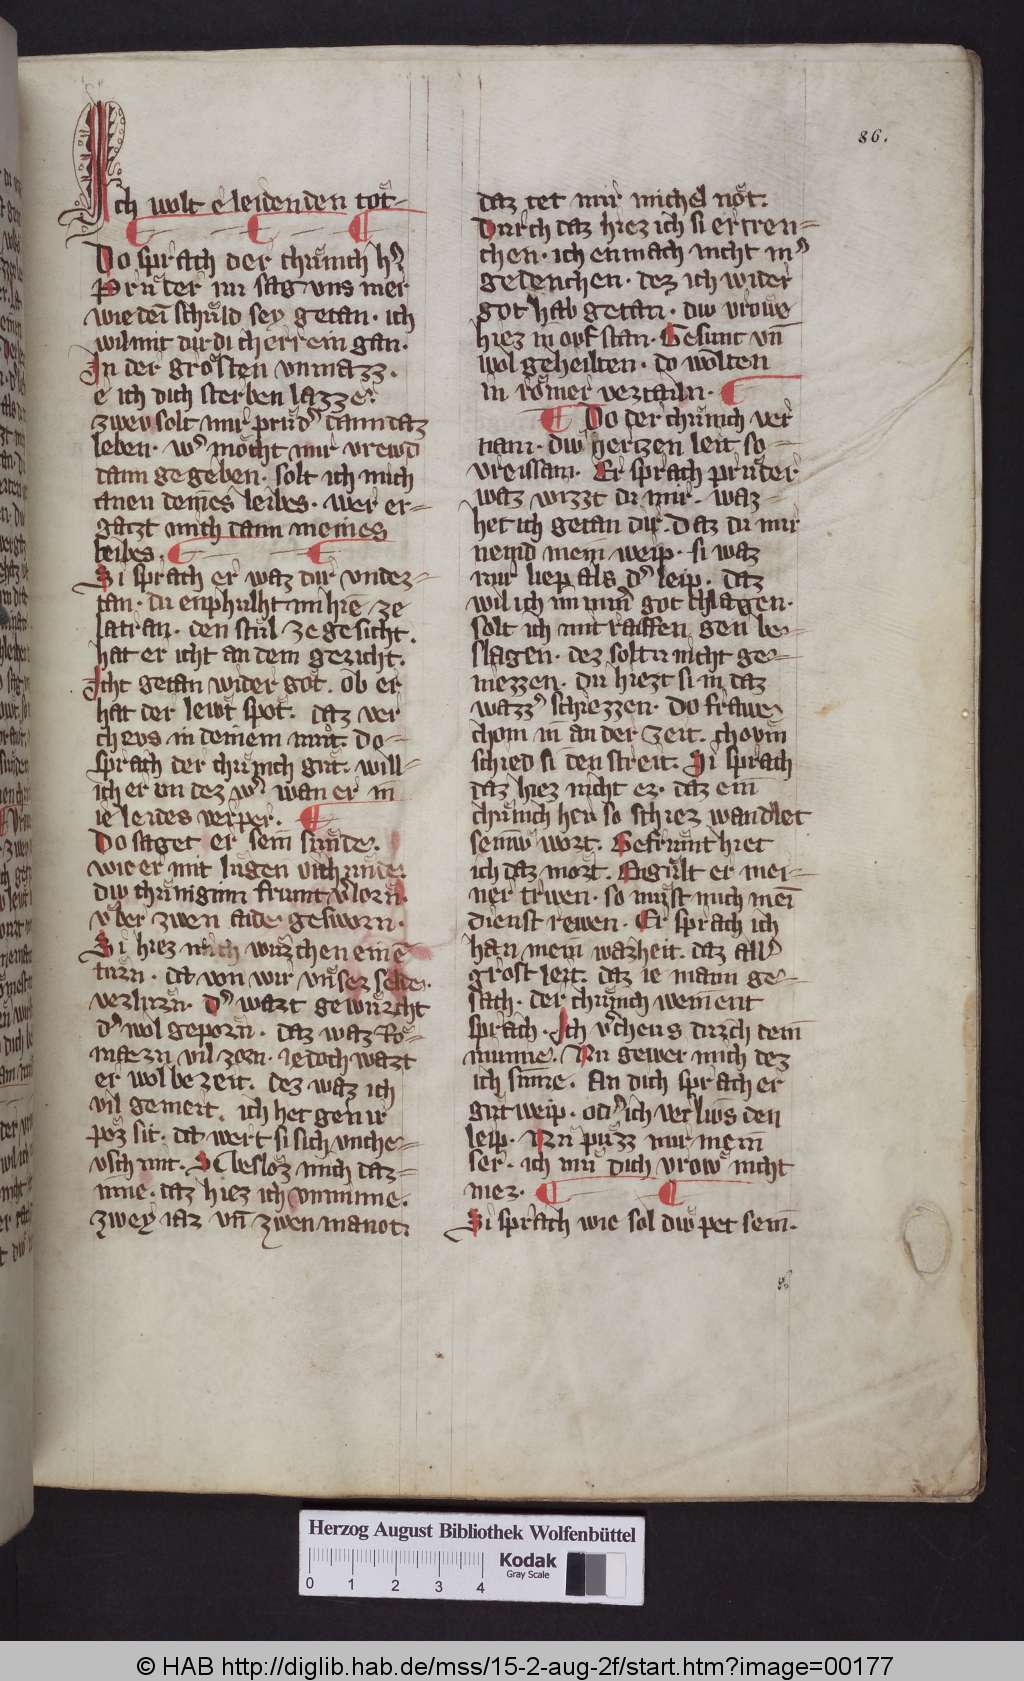 86.
Ich wolt e leiden den tot
Do sprach der chunich h̾
Pruder nu sag uns mer
wie dein schuld sey getan · ich
wil mit dir di cherrein gan.
In der grosten unmazz.
e ich dich sterben lazze.
zwev solt mir prud̾ dann daz
leben · w̾ mocht mir vrewd
dann gegeben · solt ich mich
anen deines leibes · wer er-
gatzt mich dann meines
leibes.
Si sprach er waz dir undez-
tan · du enphulht im hie ze
latran · den stul ze gesicht.
hat er icht an dem gericht.
Icht getan wider got. ob er
hat der lewt spot. daz ver
chevs in deinem mut. Do-
sprach der chunich gut. will-
ich er un dez w̾ wan er in
ie leides verper.
Do saget er sein sunde.
wie er mit lugen vrchunde.
diw chuniginn frumt v̾lorn.
vber zwen aide gesworn.
Si hiez mich wurchen einen
turn · da von wir unser selde.
verlurn · d̾ wart gewurcht
d̾ wol geporn · daz waz Ro-
maern vil zorn · Jedoch wart
er wol bezeit. dez waz ich
vil gemeit. ich het gen ir
poz sit. da wert si sich unche-
vsch mit. Si besloz mich dar-
inne. daz hiez ich unminne.
zwey iar vn̄ zwen manot.
daz tet mir michel not.
Durch daz hiez ich si ertren-
chen · ich enmach nicht m̾
gedenchen · dez ich wider
got hab getan · diw vrowe
hiez in ovf stan · Gesunt vn̄
wol geheilten · do wolten
in romer vertailn.
Do der chunich ver
nam · diw hertzen leit so-
vreissam. Er sprach pruder
waz wizzt du mir. waz-
het ich getan dir. Daz du mir
nemd mein weip · si waz
mir liep als d̾ leip. daz
wil ich immer got chlagen.
solt ich mit raffen gen be-
slagen · dez soltu nicht ge-
niezzen. du hiezt si in daz
wazz̾ schiezzen. Do frawe
chom in an der zeit. chovm
schied si den streit. Si sprach
daz hiez nicht ez · daz ein
chunich heu so schiez wandlet
seiniw wort. Gefrumt hiet
ich daz mort. Engult er mei-
ner triwen · so must mich mein
dienst rewen · Er sprach ich
han mein warheit. daz all̾
grost leit. daz ie mann ge-
sach · der chunich weinent
sprach · Ich v̾chevs durch dein
minne. Nu gewer mich dez
ich sinne. An dich sprach er
gut weip · od̾ ich verlivs den
leip. Nu puzz mir mein
ser · ich mu dich vrow nicht
mer.
Si sprach wie sol diw pet sein.
Herzog August Bibliothek Wolfenbüttel
Kodak
Gray Scale
0 1 2 3 4
© HAB http://diglib.hab.de/mss/15-2-aug-2f/start.htm?image=00177